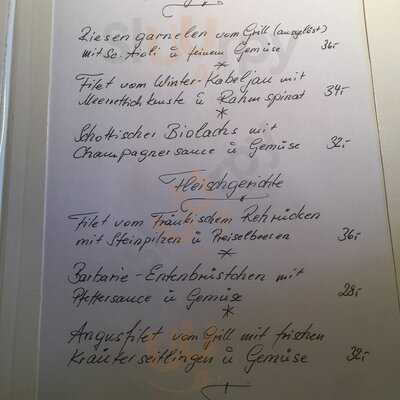 Riesengarnelen vom Grill (ausgelöst)
mit So. Aioli u feinem Gemüse 36,-
*
Filet vom Winter-Kabeljau mit
Meerrettichkruste u Rahmspinat 34,-
*
Schottischer Biolachs mit
Champagnersauce u Gemüse 32,-
Fleischgerichte
Filet vom Fränkischem Rehrücken
mit Steinpilzen u Preiselbeeren 36,-
*
Barbarie-Entenbrüstchen mit
Pfeffersauce u Gemüse 28,-
*
Angusfilet vom Grill mit frischen
Kräuterseitlingen u Gemüse 32,-